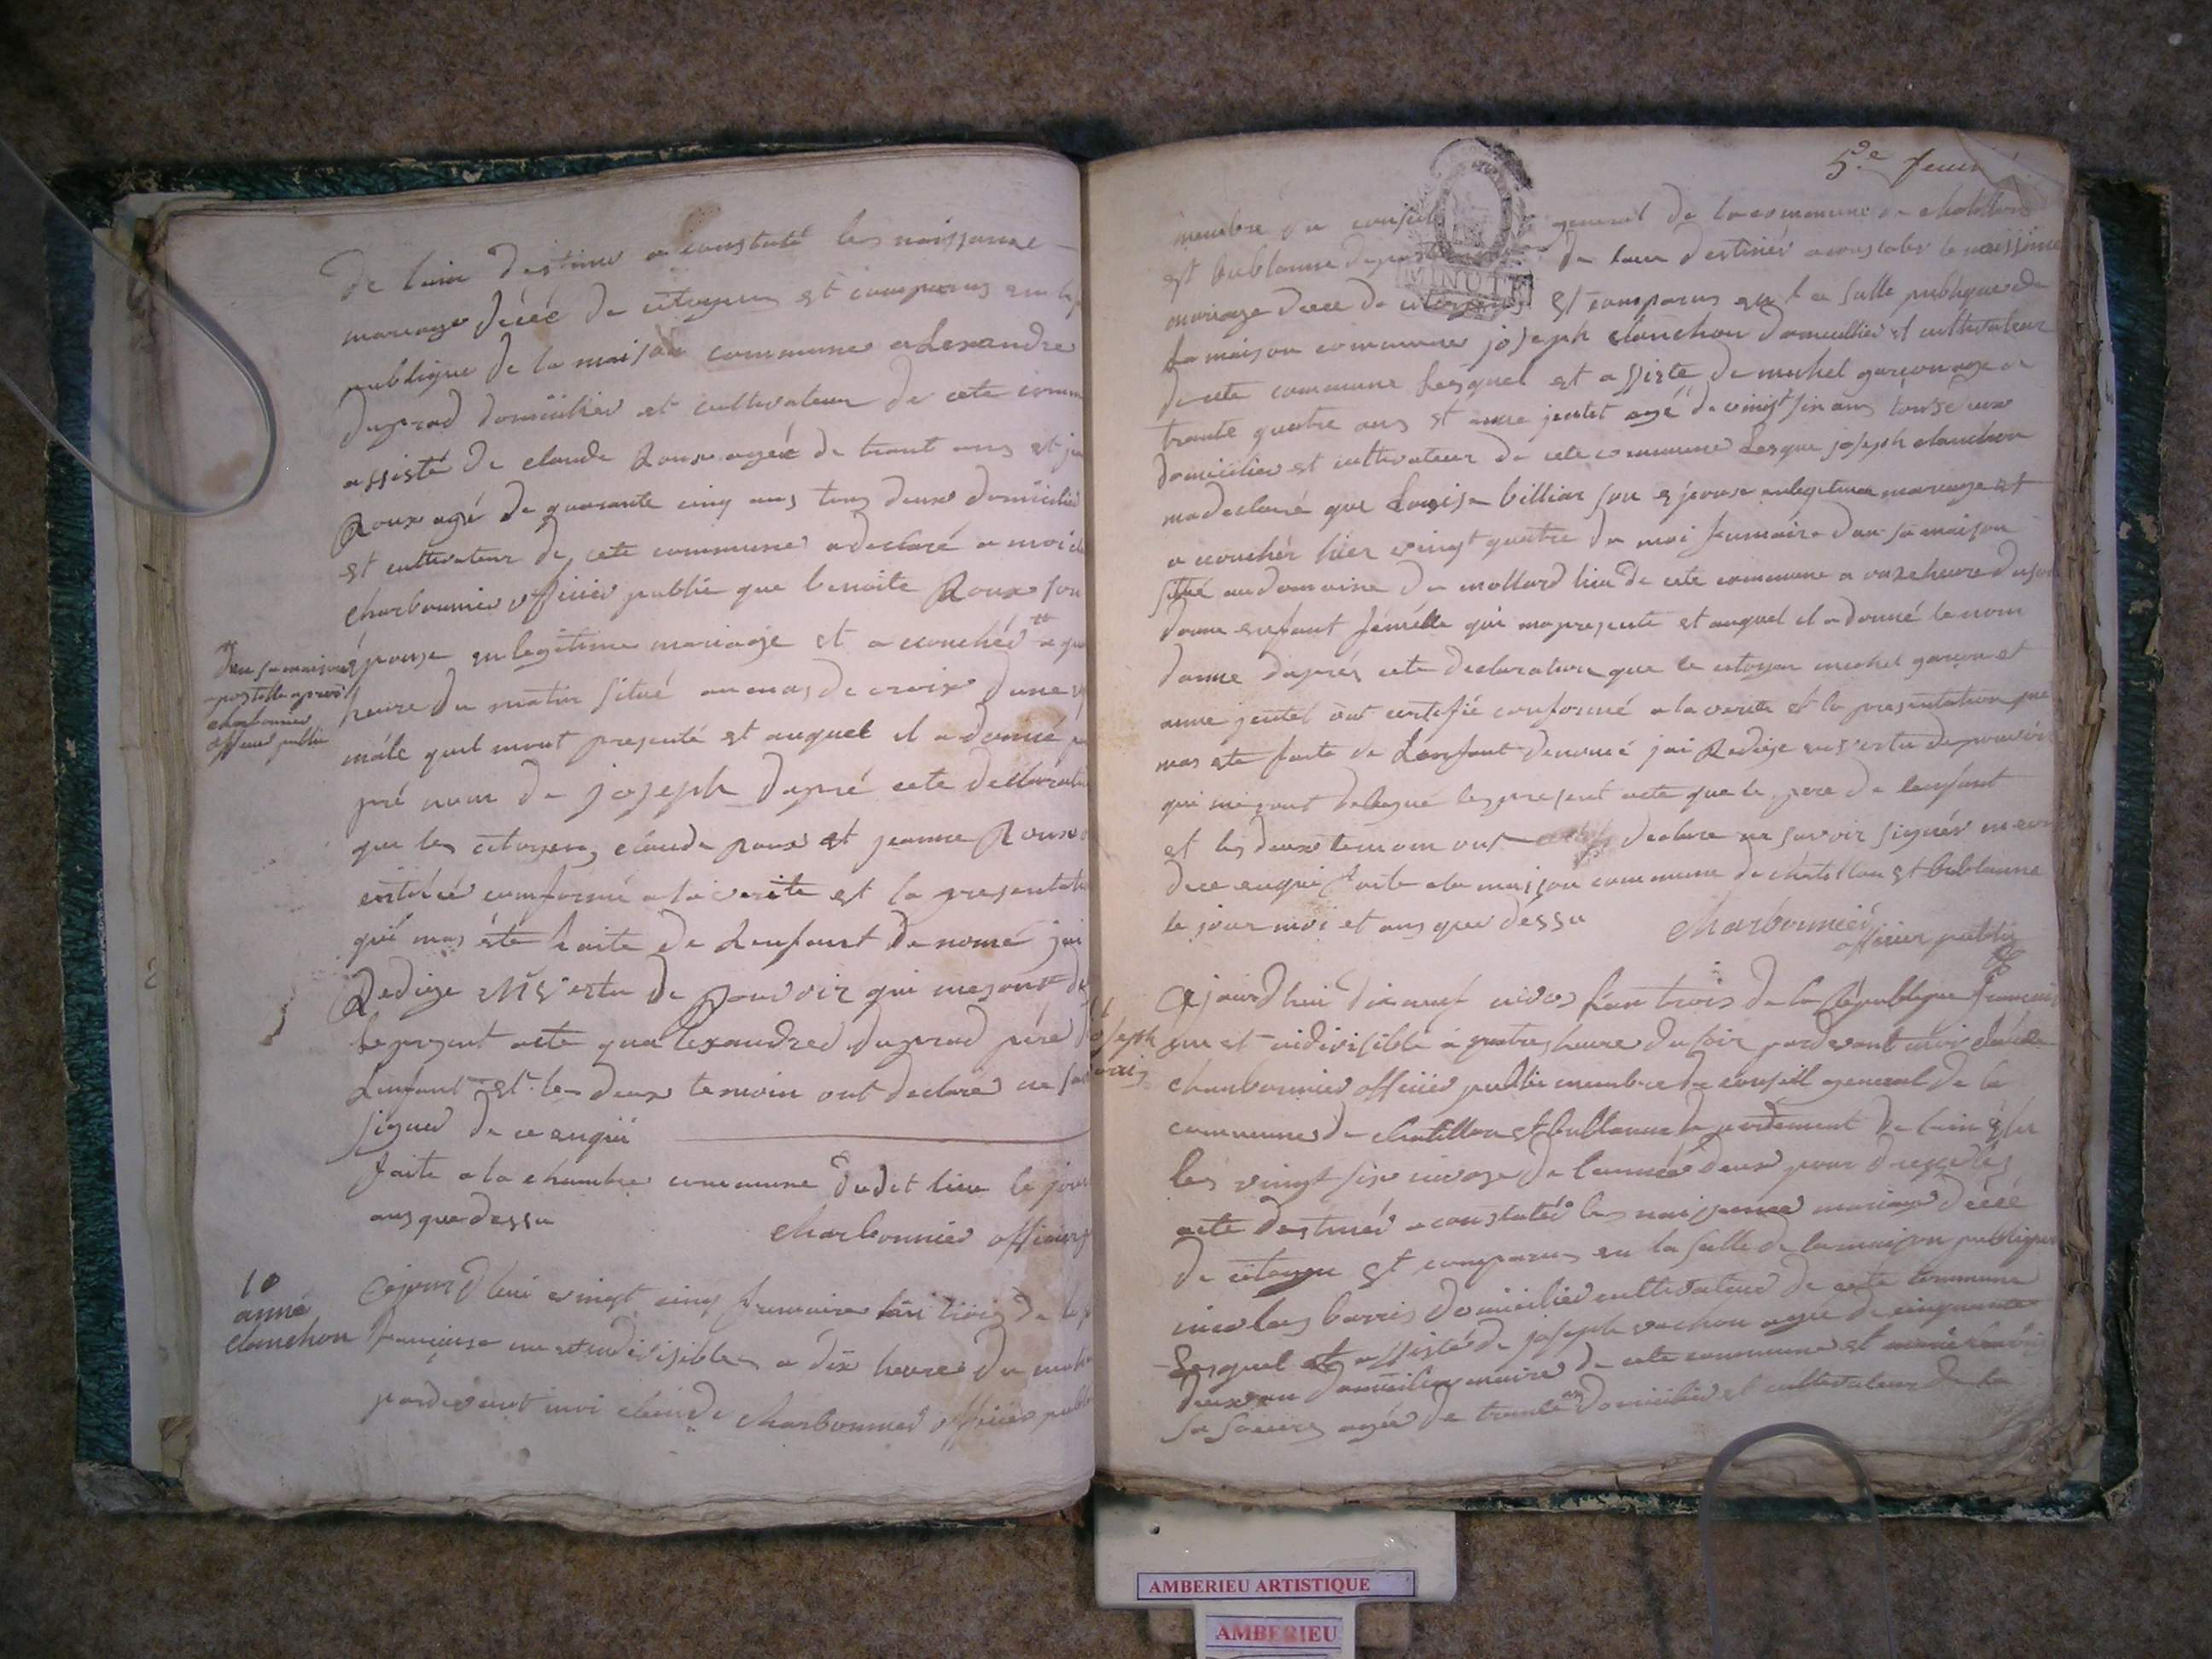 De lain destiner a constater les naissance
mariage décé de citoyens est comparus en la
publique de la maison commune alexandre
duprad domicilier et cultivateur de cete comm
assisté de claude Roux agé de trant ans et
Roux agé de quarante cinq ans tous deux domicilié
et cultivateur de cete commune a declaré a moi
charbonnier officier public que benoite Roux son
épouse en legitime mariage et a couchér a
heure du matin situé au mas de croix dune
mâle quil mont presenté et auquel il a donné
pré nom de joseph dapré cete déclaration
que les citoyens claude roux et jeanne Roux
conformé a la verite et la presentation
qui mas éte faite de Lenfant denomé jai
Redige en vertu de pouvoir qui mesont
le present acte que alexandred duprad pére
Lenfant et les deux temoin ont declaré ne
signer de ce enqui
faite a la chambre commune dudit lieu le jour
ans que dessu
charbonnier officier
** dans sa maison
apostille aprouv
charbonnier
officier public
10
anne
clanchon
Cejourdhui vingt cinq frumaire lan trois de la
francaise une et indivisible a dix heure du matin
pardevant moi claude charbonnier officier public
5.e feuil
membre du conseil general de la commune de chatillon
est bublanne de lain destiner a constater le naissance
mariage décé de citoyens est comparus en la salle publique de
la maison commune joseph clanchon domicillier et cultivateur
de cete commune Lesquel est assiste de michel garçon age de
trante quatre ans et anne jentet agé de vingt sin ans tous deux
domicilier et cultivateur de cete commune Lesque joseph clanchon
ma declaré que Louise billiar son épouse en legitime mariage et
a couchér hier vingt quatre du moi frumaire dans sa maison
situé au domaine du mollard lieu de cete commune a onze heure du soir
dune enfant fémélle qui ma presente et auquel il a donné le nom
danne daprés cete declaration que le citoyen michel garçon et
anne jentet ont certifié conformé a la verite et la presentation que
mas ete faite de Lenfant denomé jai Redige en vertu de pouvoir
qui me sont delegué les present acte que le pere de lenfant
et les deux temoin ont declare ne savoir signér
de ce enqui faite a la maison commune de chatillon est bublanne
le jour moi et ans que dessu
charbonnier
officier public
11
joseph
barris
Cejourdhui dixneuf nivos lan trois de la République francaise
une et indivisible a quatres heure du soir pardevant moi claude
charbonnier officier public membre du conseil general de la
commune de chatillon et bublanne departement de lain élu
les vingt six nivose de lannée deux pour dresser les
acte destinér a constatér les naissance mariage décé
de citoyen est comparus en la salle de la maison publique
nicolas barris domicilier cultivateur de cete commune
Lesquel est assisté de joseph vachon agée de cinquante
deux an domicilier maire de cete commune et
sa soeurs agée de trante ans domicilier et cultivateur de la
MINUTE
AMBERIEU ARTISTIQUE
AMBERIEU